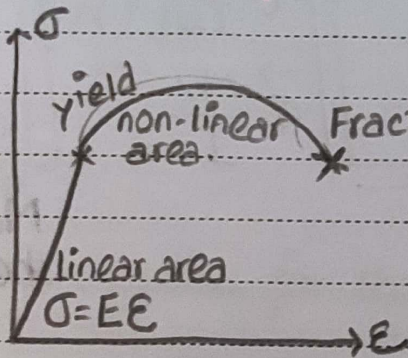 σ
yield
non-linear
area.
Frac
linear area
σ=Eε
ε